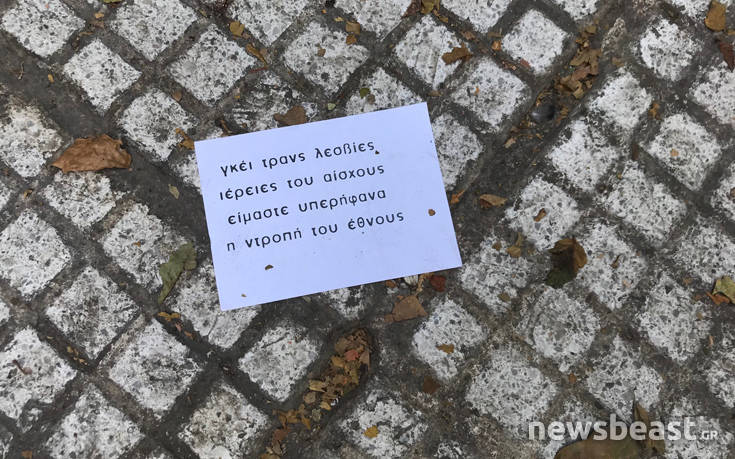 γκέι τρανς λεσβίες
ιέρειες του αίσχους
είμαστε υπερήφανα
η ντροπή του έθνους
newsbeast.GR